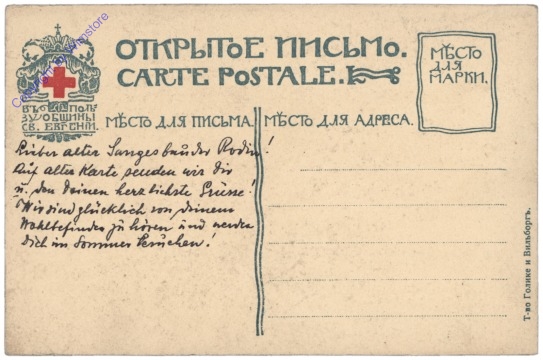 ОТКРЫТОЕ ПИСЬМО.
CARTE POSTALE.
МѢСТО
ДЛЯ
МАРКИ.
ВЪ ПОЛЬ
ЗУ ОБЩИНЫ
СВ. ЕВГЕНІИ.
МѢСТО ДЛЯ ПИСЬМА.
МѢСТО ДЛЯ АДРЕСА.
Lieber alter Sangesbruder Rodin!
Auf alter Karte senden wir Dir
u. den Deinen herzlichste Grüsse!
Wir sind glücklich von Deinem
Wohlbefinden zu hören und werden
Dich im Sommer besuchen!
Т-во Голике и Вильборгъ.